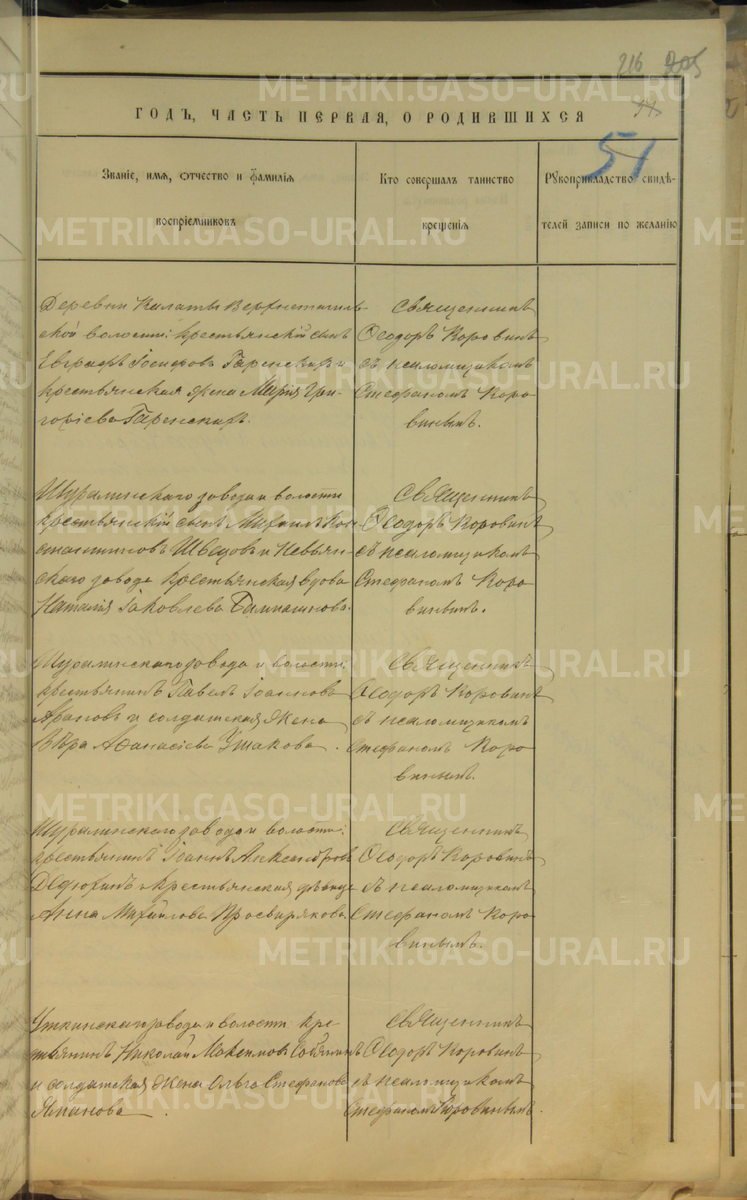 216 205
METRIKI.GASO-URAL.RU
ГОДЪ, ЧАСТЬ ПЕРВАЯ, О РОДИВШИХСЯ
51
Званіе, имя, отчество и фамилія
воспріемниковъ
Кто совершалъ таинство
крещенія
Рукоприкладство свидѣ-
телей записи по желанію
METRIKI.GASO-URAL.RU
Деревни Калаты Верхнетагиль-
ской волости: крестьянскій сынъ
Евграфъ Іосифовъ Гаренскихъ и
METRIKI.GASO-URAL.RU
крестьянская жена Марія Гри-
горіева Гаренскихъ.
Священникъ
Ѳеодоръ Коровинъ
съ псаломщикомъ
Стефаномъ Коро
винымъ.
Шуралинскаго завода и волости
крестьянскій сынъ Михаилъ Кон
стантиновъ Шведовъ и Невьян
METRIKI.GASO-URAL.RU
скаго завода крестьянская вдова
Наталія Іаковлева
Священникъ
Ѳеодоръ Коровинъ
съ псаломщикомъ
Стефаномъ Коро
винымъ.
Шуралинскаго завода и волости:
METRIKI.GASO-URAL.RU
крестьянинъ Павелъ Іоанновъ
Араповъ и солдатская жена
Вѣра Аѳанасіева Ушакова.
Священникъ
Ѳеодоръ Коровинъ
съ псаломщикомъ
Стефаномъ Коро
винымъ.
METRIKI.GASO-URAL.RU
Шуралинскаго завода и волости:
крестьянинъ Іоаннъ Александровъ
Дедюхинъ и крестьянская дѣвица
Анна Михайлова Просвирякова
Священникъ
Ѳеодоръ Коровинъ
съ псаломщикомъ
Стефаномъ Коро
винымъ.
METRIKI.GASO-URAL.RU
Уткинскаго завода и волости кре-
стьянинъ Николай Максимовъ
и солдатская жена Ольга Стефанова
METRIKI.GASO-URAL.RU
Священникъ
Ѳеодоръ Коровинъ
съ псаломщикомъ
Стефаномъ Коровинымъ.